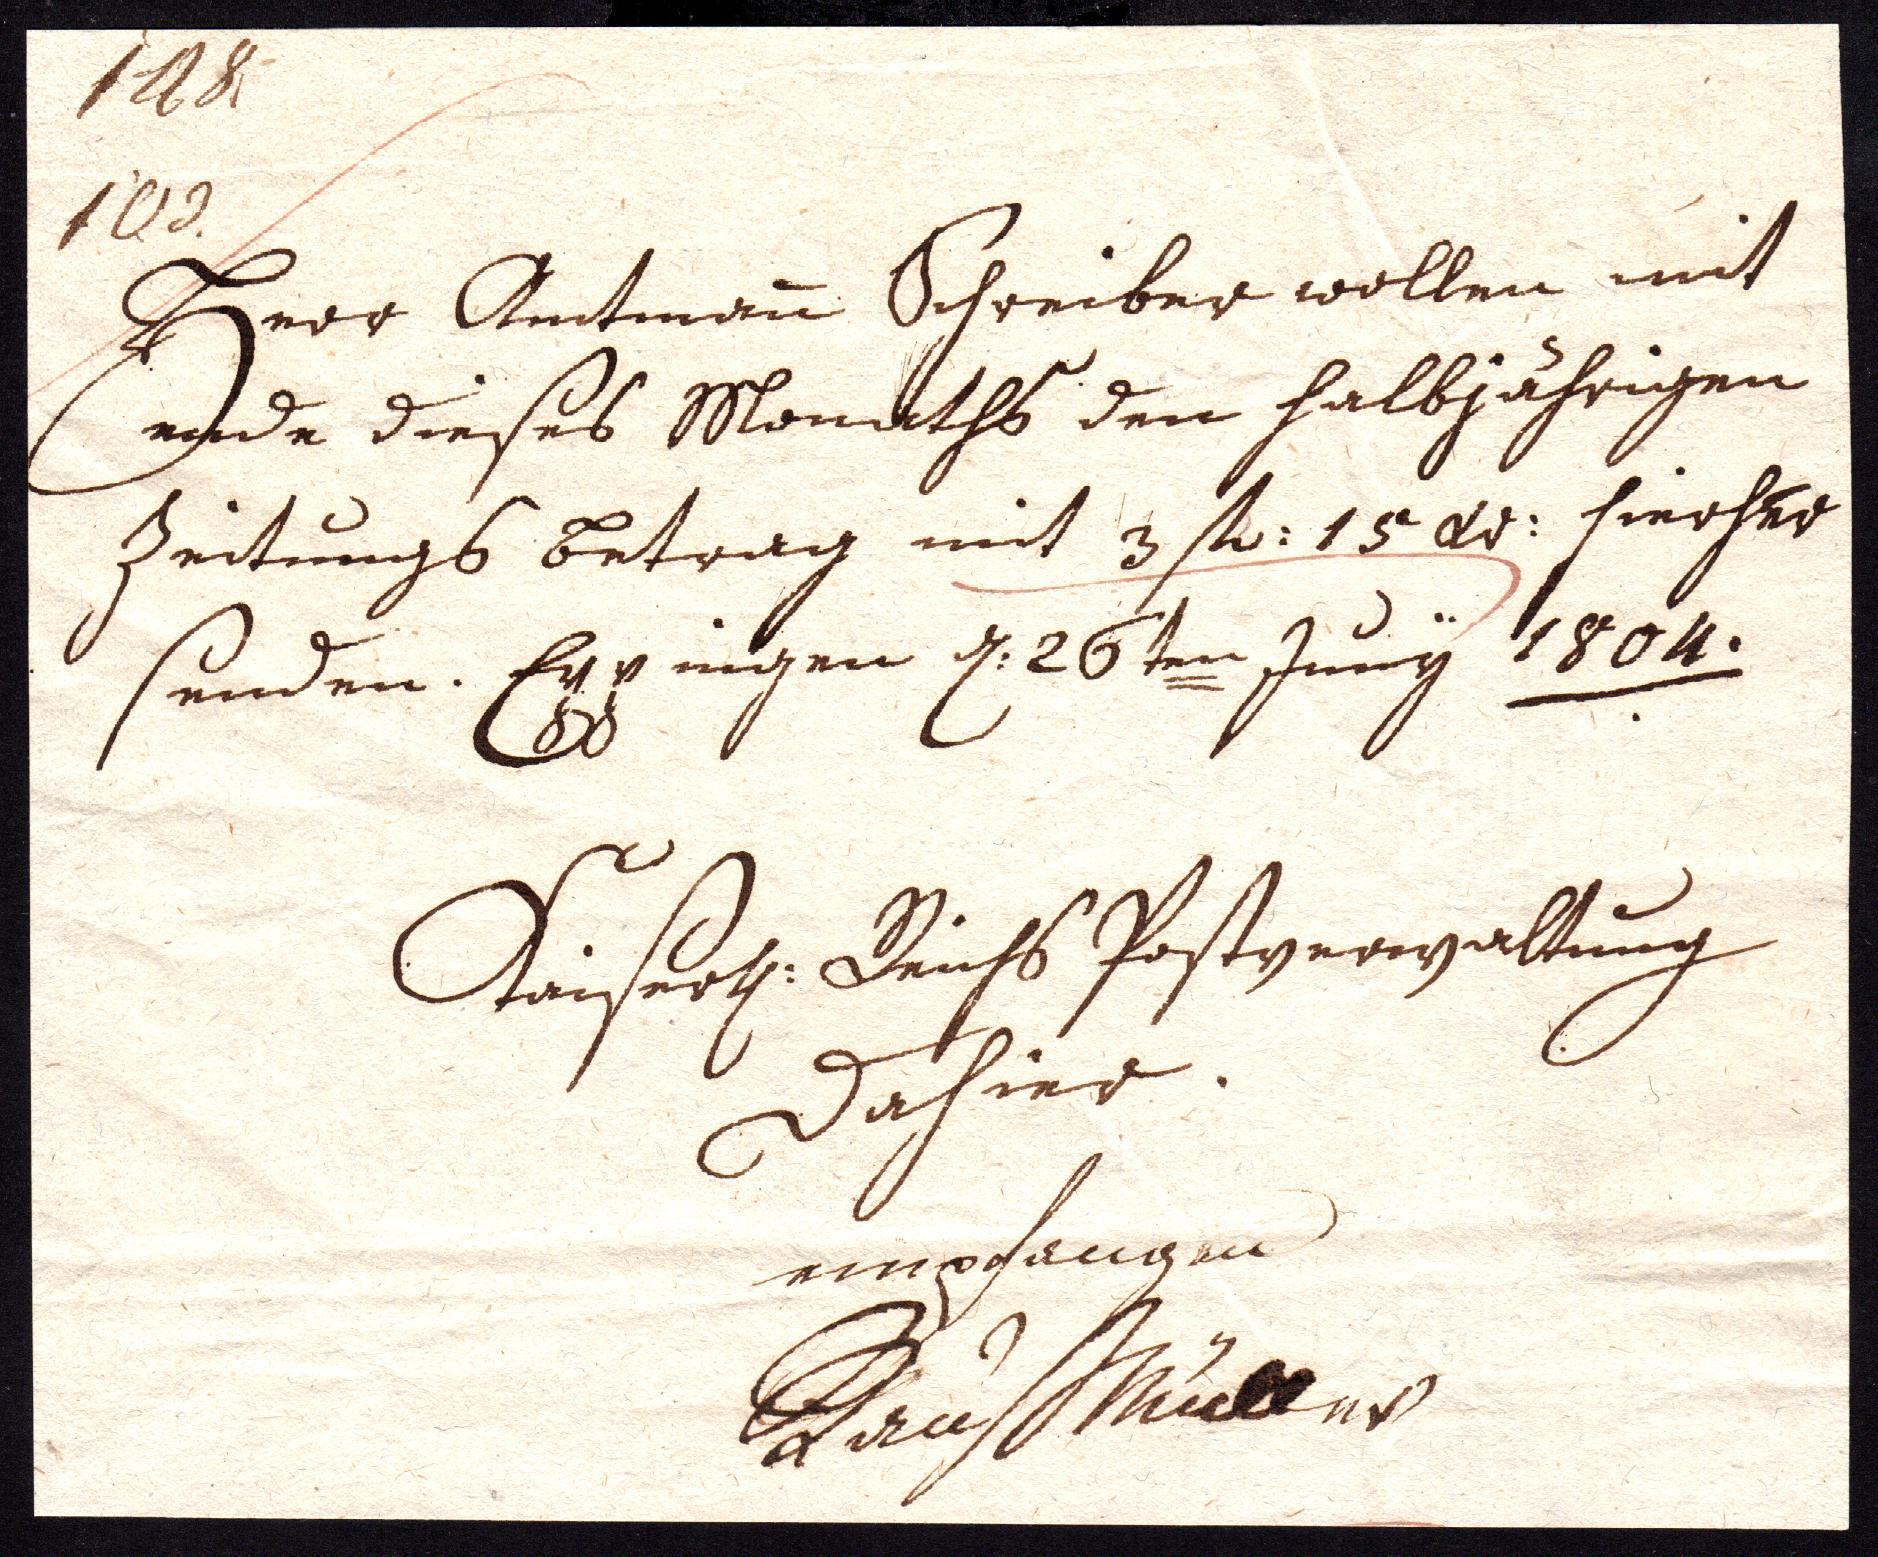 103.
Herr Amtman̅ Schreiber wollen mit
ende dieses Monaths den halbjährigen
Zeitungs Betrag mit 3 fl: 15 Xr: hierher
senden. Eppingen d: 26ten Juny 1804.
Kaiserl: Reichs Postverwaltung
Dahier.
empfangen
Müller